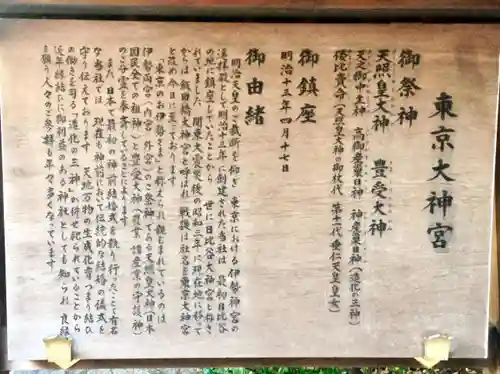 東京大神宮
御祭神
天照皇大神 豊受大神
天之御中主神 高御産巣日神 神産巣日神(造化の三神)
倭比賣命(天照皇大神の御杖代 第十一代 垂仁天皇皇女)
御鎮座
明治十三年四月十七日
御由緒
明治天皇のご裁断を仰ぎ 東京における伊勢神宮の
遥拝殿として明治十三年に創建された当社は 最初日比谷
の地に鎮座していたことから 世に日比谷大神宮と称さ
れていましたが 関東大震災後の昭和三年に現在地に移って
からは飯田橋大神宮と呼ばれ 戦後は社名を東京大神宮
と改め今日に至っております
「東京のお伊勢さま」と称えられ親しまれているのは
伊勢両宮(内宮 外宮)のご祭神である天照皇大神(日本
国民全ての祖神)と豊受大神(農業 諸産業の守護神)
のご分霊を奉斎していることによります
また 日本で最初の神前結婚式を執り行ったことで有名
な当社では 現在も神前において伝統的な結婚の儀式を
守り伝えております 天地万物の生成化育つまり結び
の働きを司る「造化の三神」が併せ祀られていることから
近年縁結びに御利益のある神社としても知られ 良縁
を願う人々のご参拝も年々多くなっています